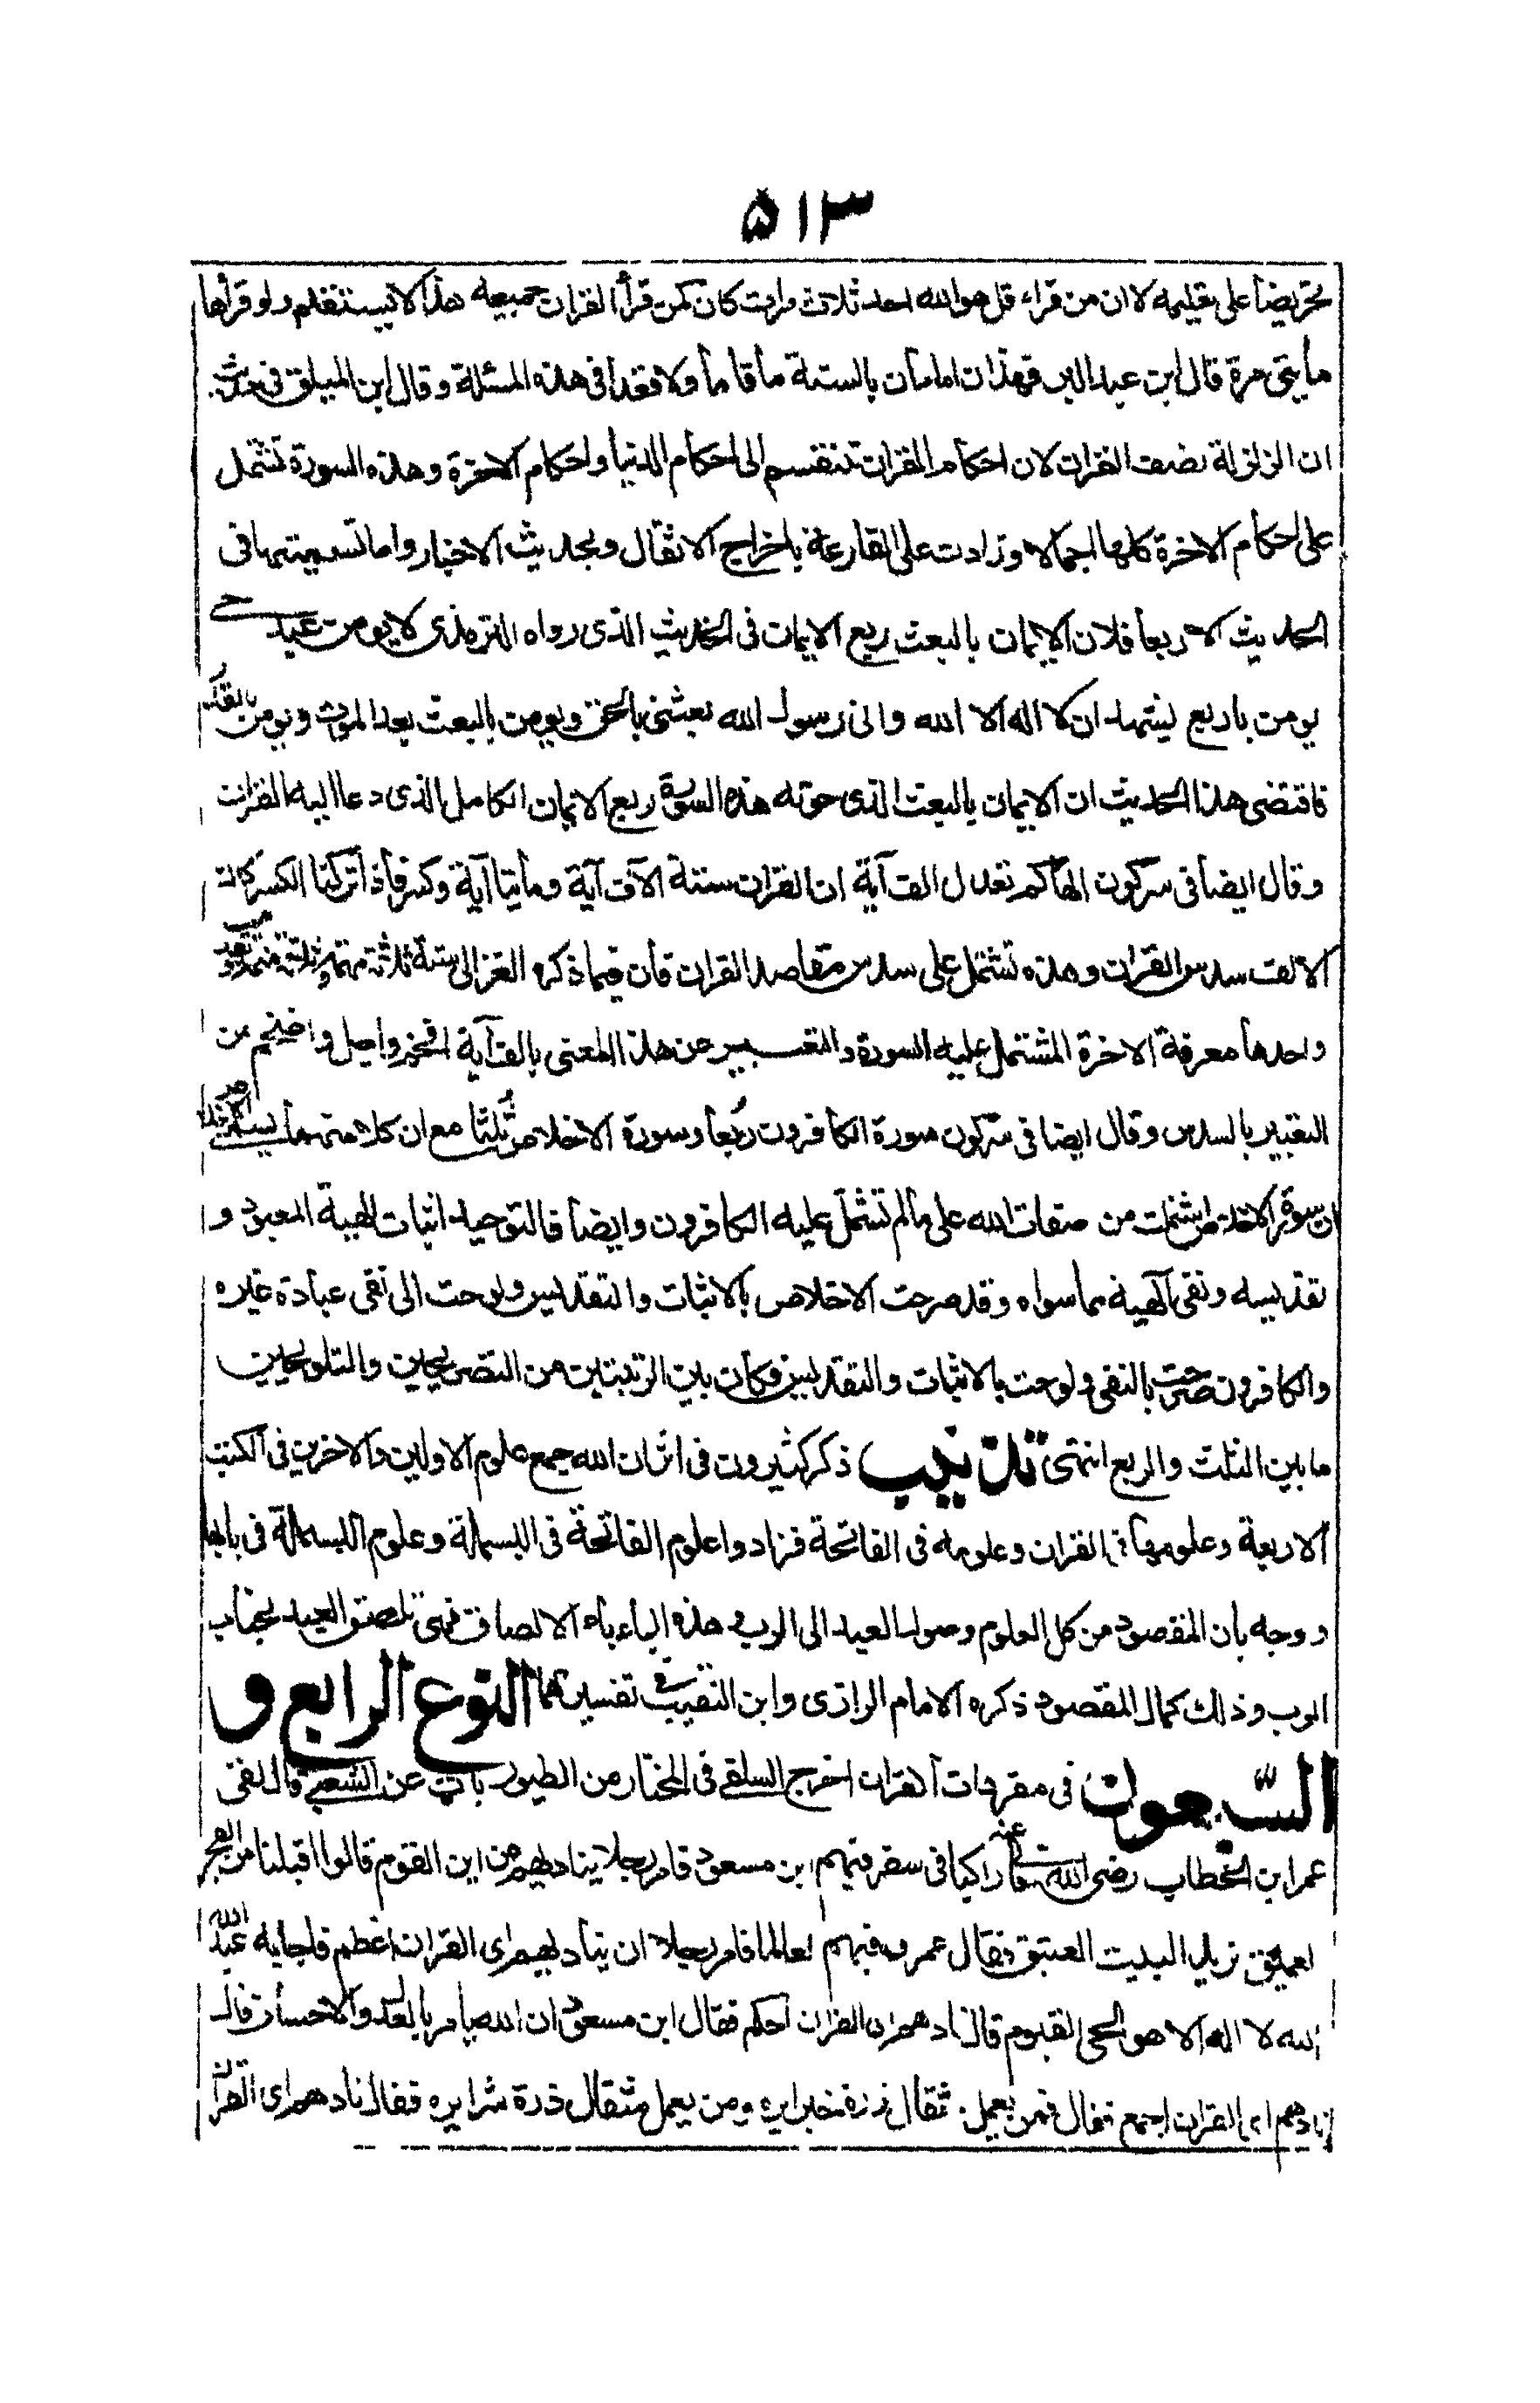 ۵۱۳
تحريضا على تعليمه لا ان من قراء قل هو الله احد ثلاث مرات كان كمن قرأ القران جميعه هذا لا يستقيم ولو قرأها
مأيتى مرة قال ابن عبد البر فهذان امامان بالسنة ما قاما ولا قعدا فى هذه المسئلة وقال ابن الميلق فى حديث
ان الزلزلة نصف القران لان احكام القران تنقسم الى احكام الدنيا واحكام الاخرة وهذه السورة تشتمل
على احكام الاخرة كلها اجمالا وزادت على القارعة باخراج الاثقال وبحديث الاخبار واما تسميتها فى
الحديث الاخر ربعا فلان الايمان بالبعث ربع الايمان فى الحديث الذى رواه الترمذى لا يومن عبد حتى
يومن باربع يشهد ان لا اله الا الله وانى رسول الله بعثنى بالحق ويومن بالموت ويومن بالبعث بعد الموت ويومن بالقدر
فاقتضى هذا الحديث ان الايمان بالبعث الذى حوته هذه السورة ربع الايمان الكامل الذى دعا اليه القران
وقال ايضا فى سر كون الهاكم تعدل الف آية ان القران ستة الآف آية ومأيتا آية وكسر فأذا تركنا الكسر كان
الالف سدس القران وهذه تشتمل على سدس مقاصد القران فأن فيما ذكره الغزالى ستة ثلاثة مهمة وثلاثة متمة وتقدمت
واحدها معرفة الاخرة المشتمل عليه السورة والتعبير عن هذا المعنى بالف آية افخم واجل واضخم من
التعبير بالسدس وقال ايضا فى سر كون سورة الكافرون ربعا وسورة الاخلاص ثلثا مع ان كلا منهما يسمى الاخلاص
ان سورة الاخلاص اشتملت من صفات الله على ما لم تشتمل عليه الكافرون وايضا فالتوحيد اثبات الهية المعبود و
تقديسه ونفى الهية ما سواه وقد صرحت الاخلاص بالاثبات والتقديس ولوحت الى نفى عبادة غيره
والكافرون صرحت بالنفى ولوحت بالاثبات والتقديس فكان بين الرتبتين من التصريحين والتلويحين
ما بين الثلث والربع انتهى تذنيب ذكر كثيرون فى اثر ان الله جمع علوم الاولين والاخرين فى الكتب
الاربعة وعلومها فى القران وعلومه فى الفاتحة فزادوا علوم الفاتحة فى البسملة وعلوم البسملة فى بائها
ووجه بأن المقصود من كل العلوم وصول العبد الى الرب وهذه الباء باء الالصاق فهى تلصق العبد بجناب
الرب وذلك كمال المقصود ذكره الامام الرازى وابن النقيب فى تفسيرهما النوع الرابع و
السبعون فى مفردات القران اخرج السلفى فى المختار من الطيوريات عن الشعبى قال لقى
عمر ابن الخطاب رضى الله تعالى عنه ركبا فى سفر فيهم ابن مسعود فامر رجلا يناديهم من اين القوم قالوا اقبلنا من الفج
العميق نريد البيت العتيق فقال عمر ان فيهم لعالما فامر رجلا ان يناديهم اى القران اعظم فاجابه عبد الله
الله لا اله الا هو الحى القيوم قال نادهم اى القران احكم فقال ابن مسعود ان الله يأمر بالعدل والاحسان قال
نادهم اى القران اجمع فقال فمن يعمل مثقال ذرة خيرا يره ومن يعمل مثقال ذرة شرا يره فقال نادهم اى القران